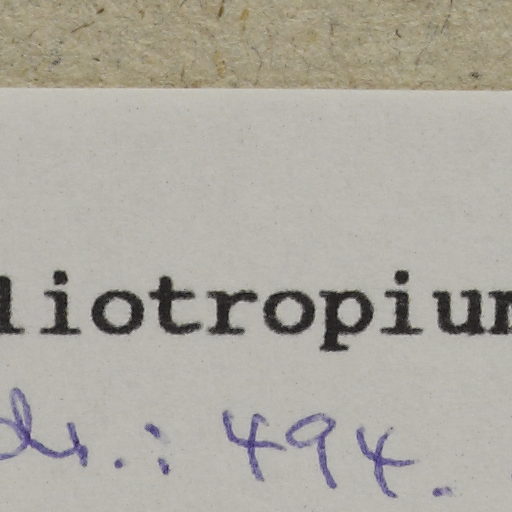 liotropium
: 494.